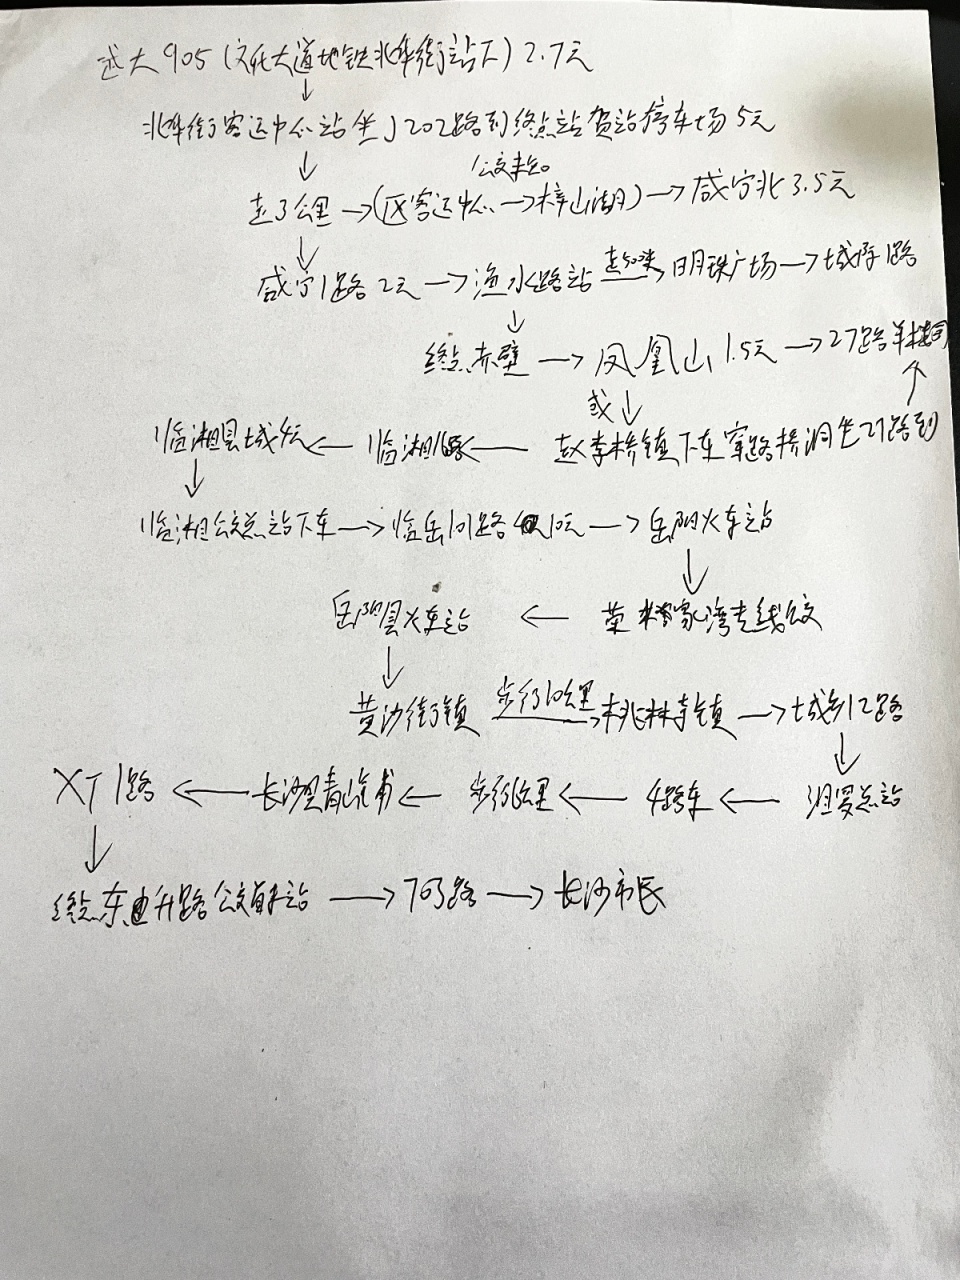 905(文化大道地铁北华街站下)2.7元
↓
北华街客运中心站坐J202路到终点站贺站停车场5元
↓ 公交未知
走3公里→(区客运中心→梓山湖)→咸宁北3.5元
↓
咸宁1路2元→渔水路站 走50米→明珠广场→城际1路
↓
终点赤壁→凤凰山1.5元→27路羊楼洞
或↓ ↑
临湘县城4元←临湘←赵李桥镇下车穿路桥洞坐27路到
↓
临湘公交总站下车→临岳101路10元→岳阳火车站
↓
岳阳县火车站←荣家湾专线公交
↓
黄沙街镇 步行10公里→桃林寺镇→城乡12路
↓
XT1路←长沙县青山铺←步行公里←4路车←汨罗总站
↓
终点东升路公交首末站→703路→长沙市民